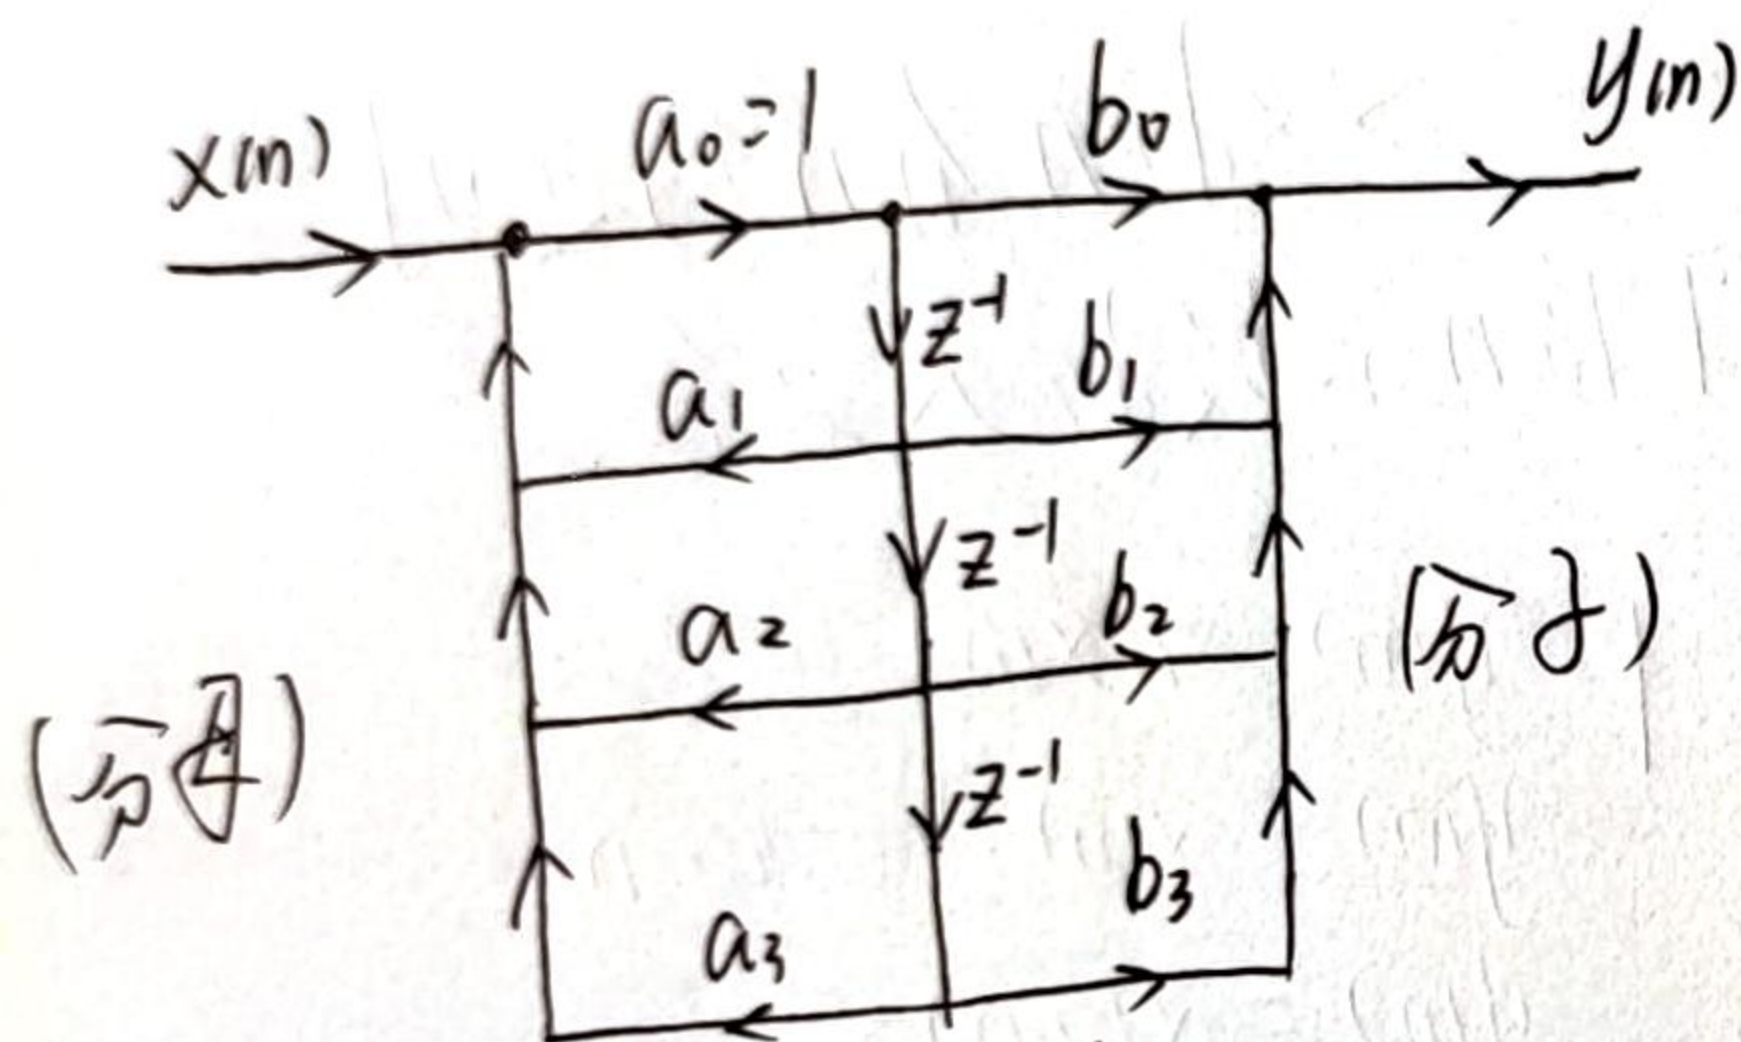 x(n) a₀=1 b₀ y(n)
z⁻¹
a₁ b₁
z⁻¹
a₂ b₂ (分子)
(分母)
z⁻¹
a₃ b₃